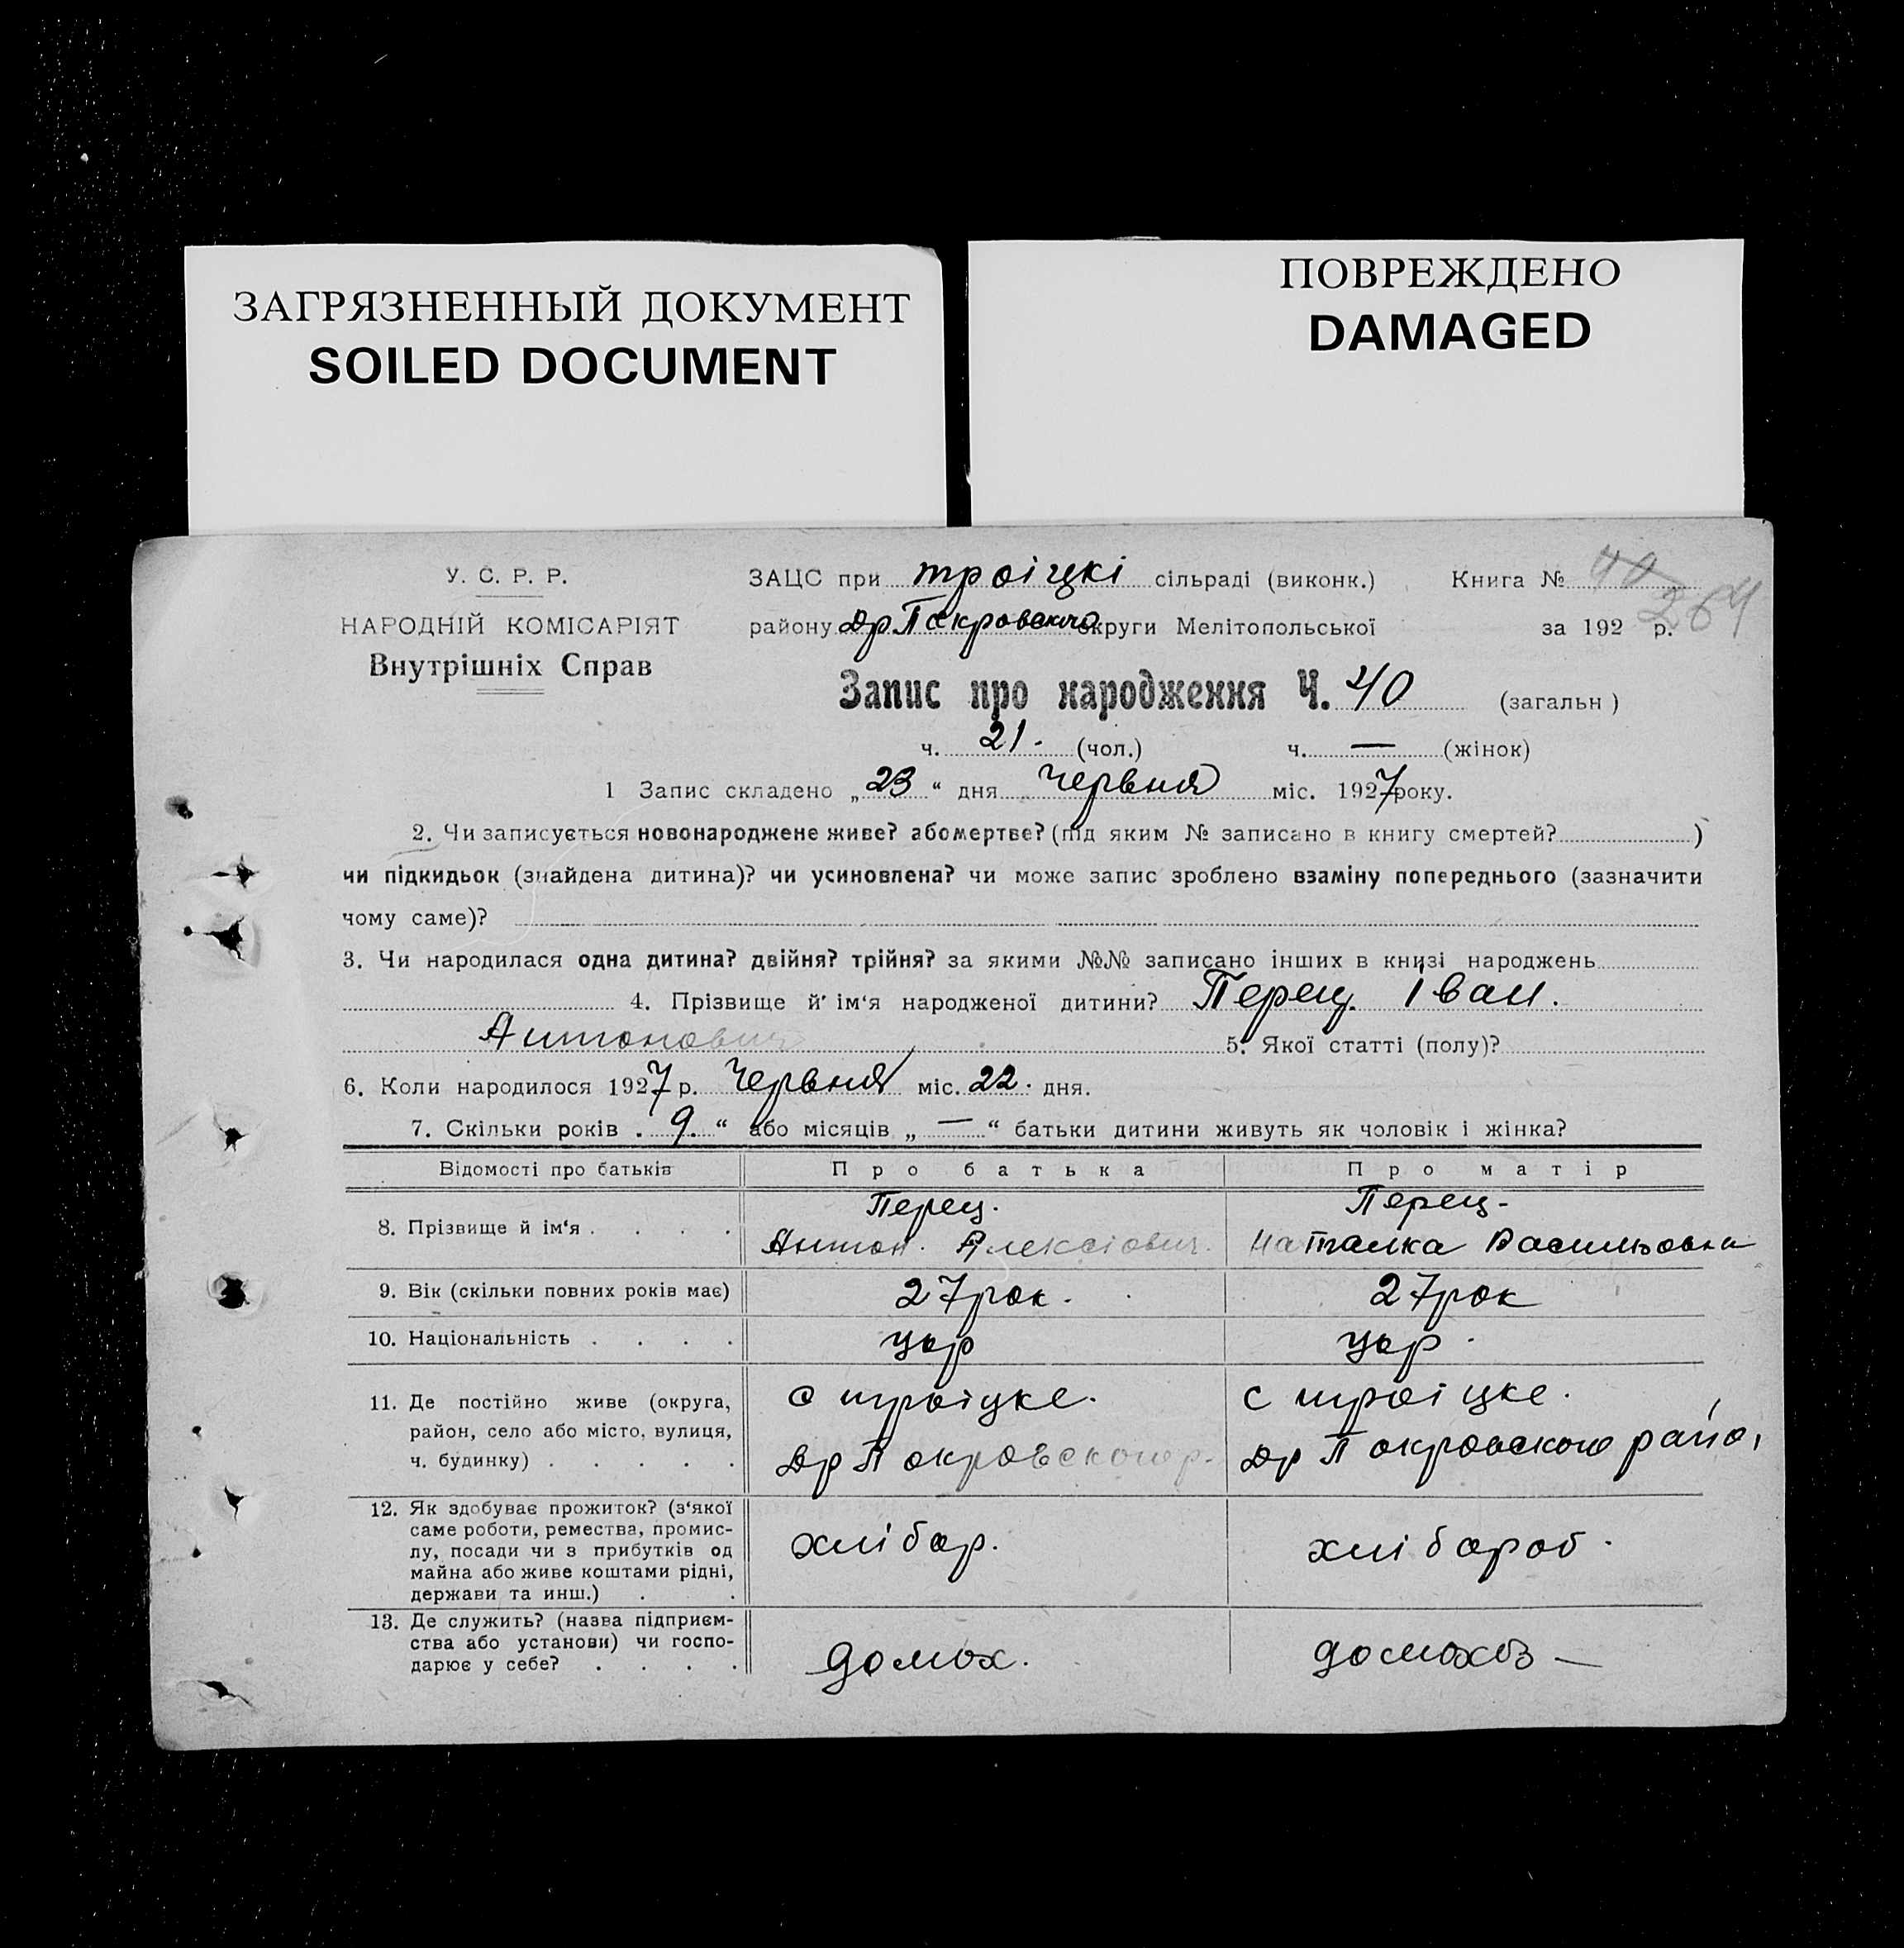 ЗАГРЯЗНЕННЫЙ ДОКУМЕНТ
SOILED DOCUMENT
ПОВРЕЖДЕНО
DAMAGED
У. С. Р. Р.
НАРОДНІЙ КОМІСАРІЯТ
Внутрішніх Справ
ЗАЦС при троіцкі сільраді (виконк.) Книга № 40
264
району Др.Покровського округи Мелітопольської за 192 р.
Запис про народження Ч. 40 (загальн )
ч. 21. (чол.) ч. — (жінок)
1 Запис складено „23“ дня Червня міс. 1927 року.
2. Чи записується новонароджене живе? або мертве? (під яким № записано в книгу смертей? )
чи підкидьок (знайдена дитина)? чи усиновлена? чи може запис зроблено взаміну попереднього (зазначити
чому саме)?
3. Чи народилася одна дитина? двійня? трійня? за якими №№ записано інших в книзі народжень
4. Прізвище й ім‘я народженої дитини? Перец. Іван.
Антонович 5. Якої статті (полу)?
6. Коли народилося 1927 р. Червня міс. 22. дня.
7. Скільки років . 9. “ або місяців „ — “ батьки дитини живуть як чоловік і жінка?
Відомості про батьків Про батька Про матір
8. Прізвище й ім‘я . . . . Перец. Перец-
Антон. Алексіович. Наталка Васильовна
9. Вік (скільки повних років має) 27 рок. 27 рок
10. Національність . . . . укр укр.
11. Де постійно живе (округа,
район, село або місто, вулиця,
ч. будинку) . . . . .
с троіцке.
Др Покровского р.
с троіцке.
Др Покровского райо,
12. Як здобуває прожиток? (з‘якої
саме роботи, ремества, промис-
лу, посади чи з прибутків од
майна або живе коштами рідні,
держави та инш.) . .
хлібор.
хлібороб.
13. Де служить? (назва підприєм-
ства або установи) чи госпо-
дарює у себе? . . . .
домох.
домохоз —